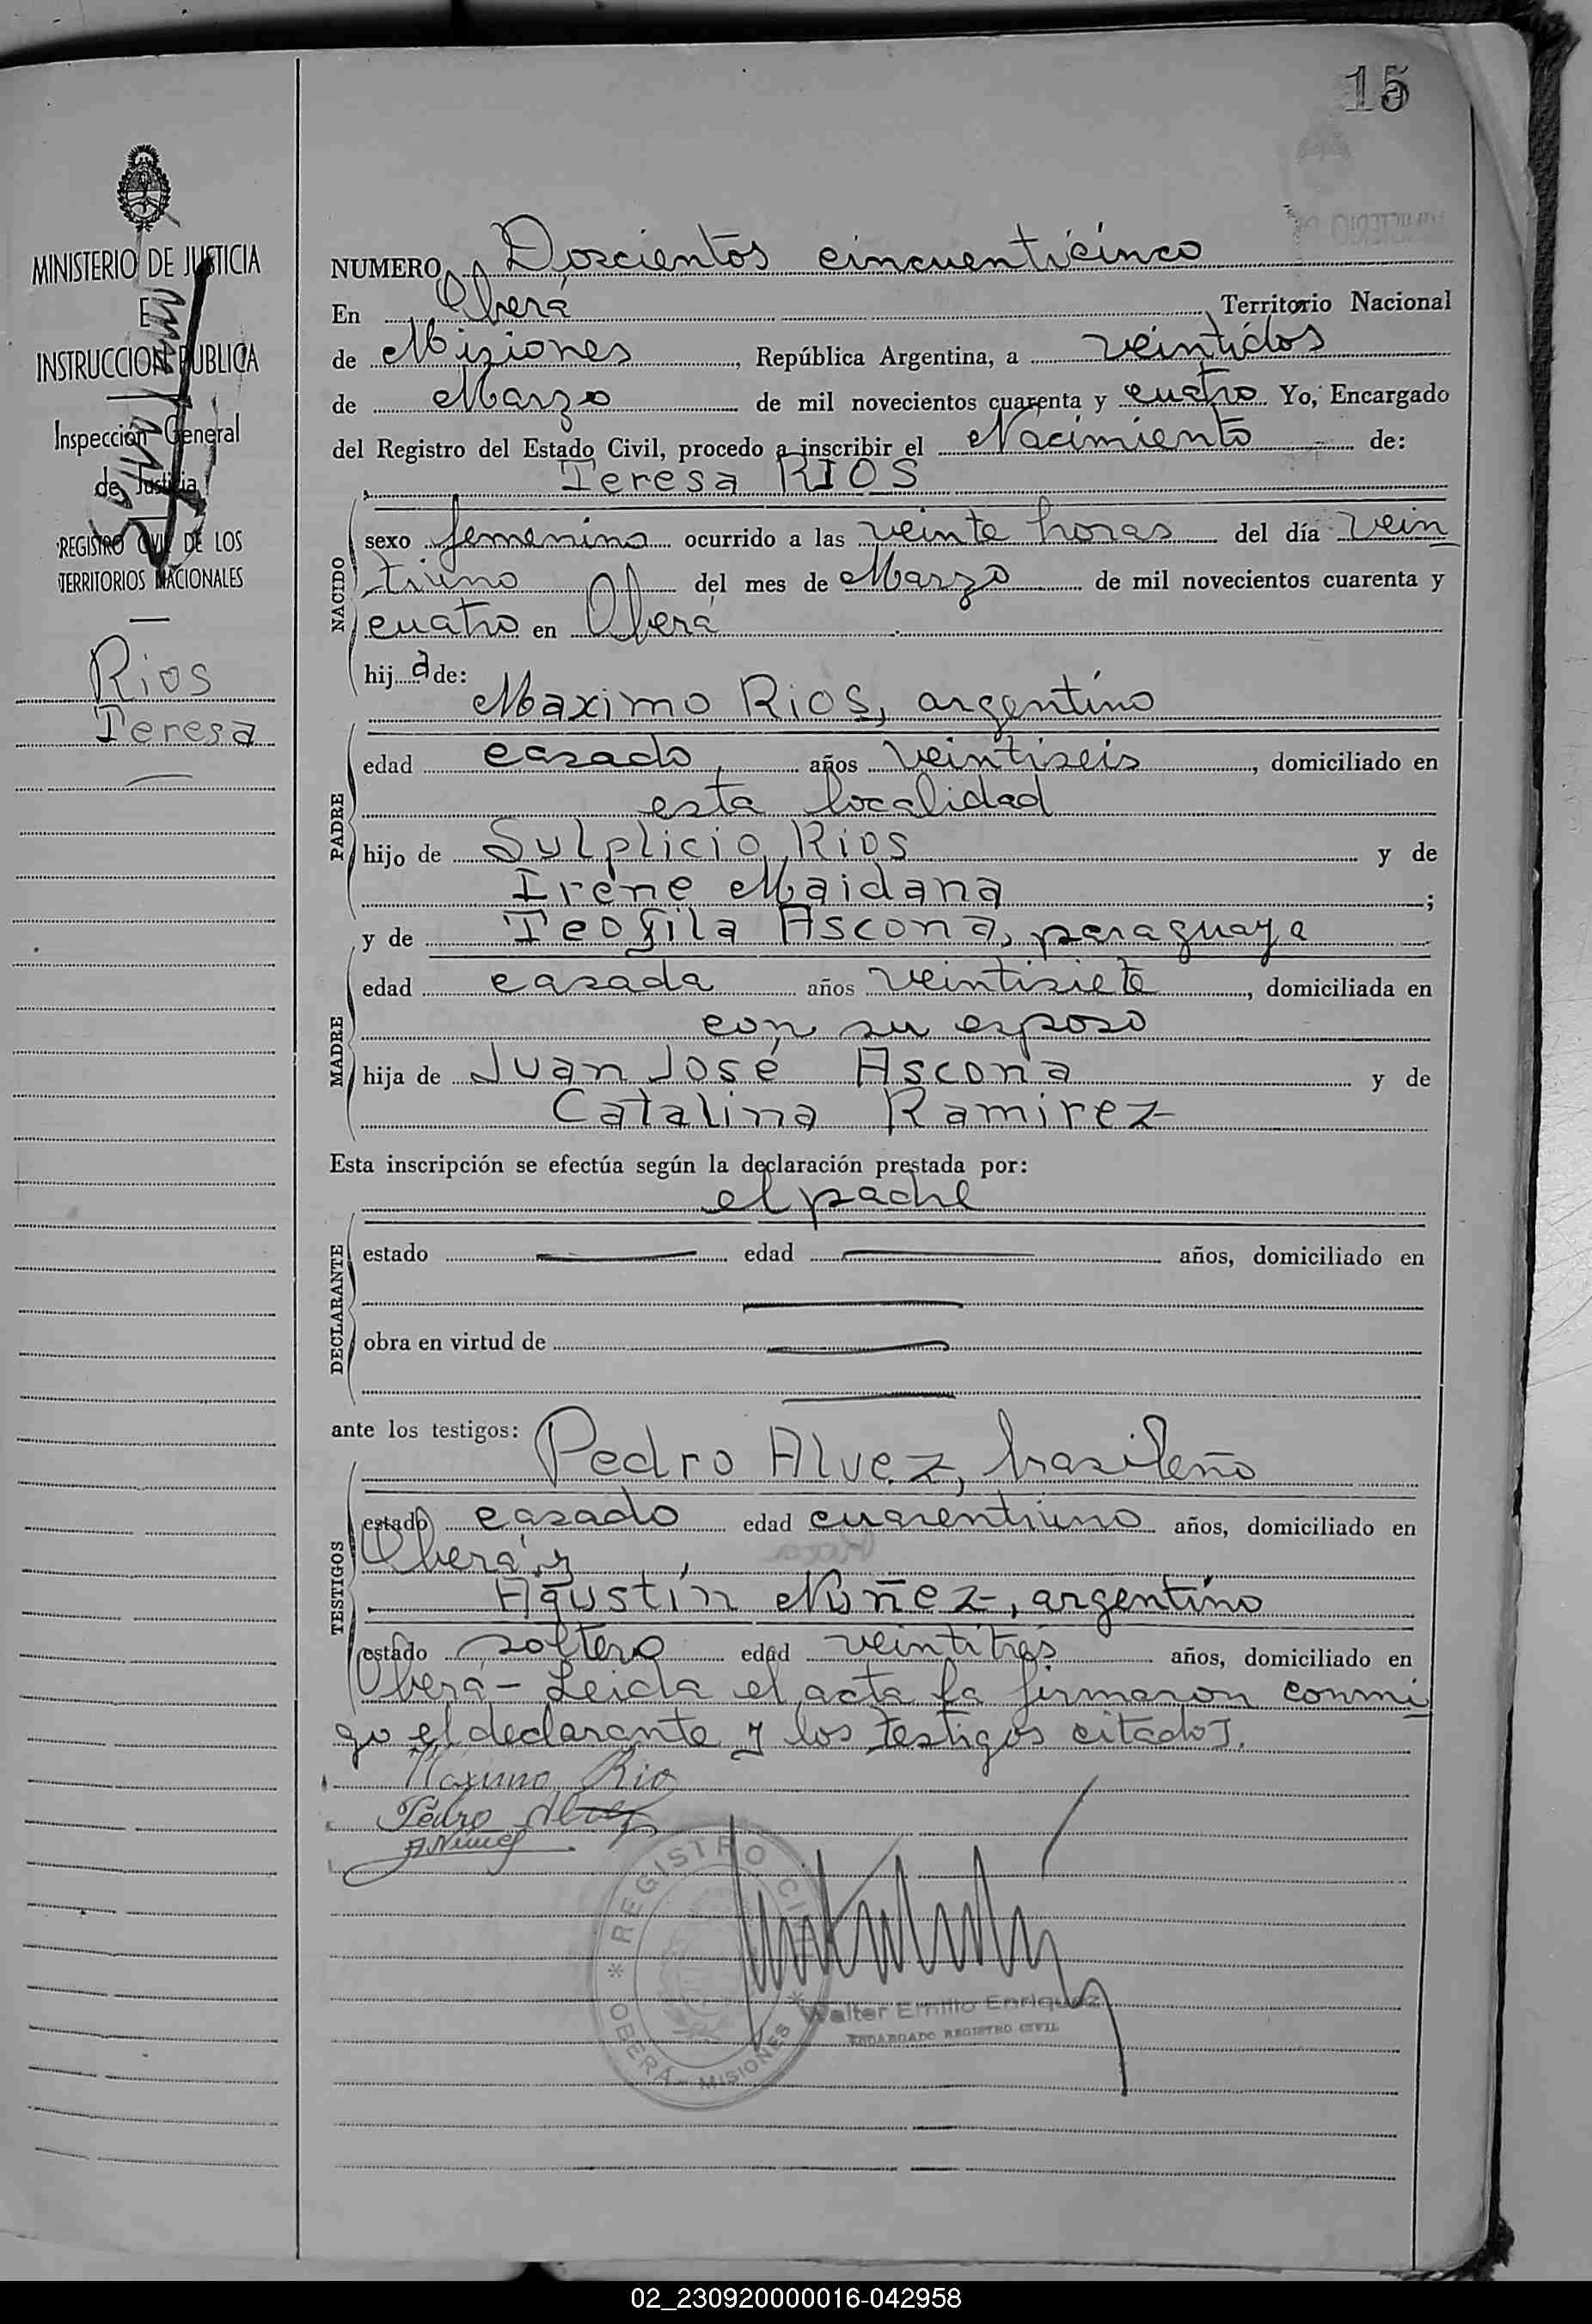 15
MINISTERIO DE JUSTICIA
E
INSTRUCCION PUBLICA
Inspección General
de Justicia
REGISTRO CIVIL DE LOS
TERRITORIOS NACIONALES
Rios
Teresa
NUMERO Doscientos cincuenticinco
En Oberá Territorio Nacional
de Misiones, República Argentina, a veintidos
de Marzo de mil novecientos cuarenta y cuatro Yo, Encargado
del Registro del Estado Civil, procedo a inscribir el Nacimiento de:
Teresa RIOS
NACIDO
sexo femenino ocurrido a las veinte horas del día vein
tiuno del mes de Marzo de mil novecientos cuarenta y
cuatro en Oberá
hija de:
Maximo Rios, argentino
PADRE
edad casado, años veintiseis, domiciliado en
esta localidad
hijo de Sulplicio Rios y de
Irene Maidana;
y de Teofila Ascona, paraguaya
MADRE
edad casada años veintisiete, domiciliada en
con su esposo
hija de Juan José Ascona y de
Catalina Ramirez
Esta inscripción se efectúa según la declaración prestada por:
el padre
DECLARANTE
estado edad años, domiciliado en
obra en virtud de
ante los testigos:
Pedro Alvez, brasileño
TESTIGOS
estado casado edad cuarentiuno años, domiciliado en
Oberá y
Agustín Núñez, argentino
estado soltero edad veintitres años, domiciliado en
Oberá - Leida el acta la firmaron conmi
go el declarante y los testigos citados.
Maximo Rio
Pedro Alvez
A Nuñez
REGISTRO CIVIL
* OBERA - MISIONES *
Walter Emilio Enriquez
ENCARGADO REGISTRO CIVIL
02_230920000016-042958